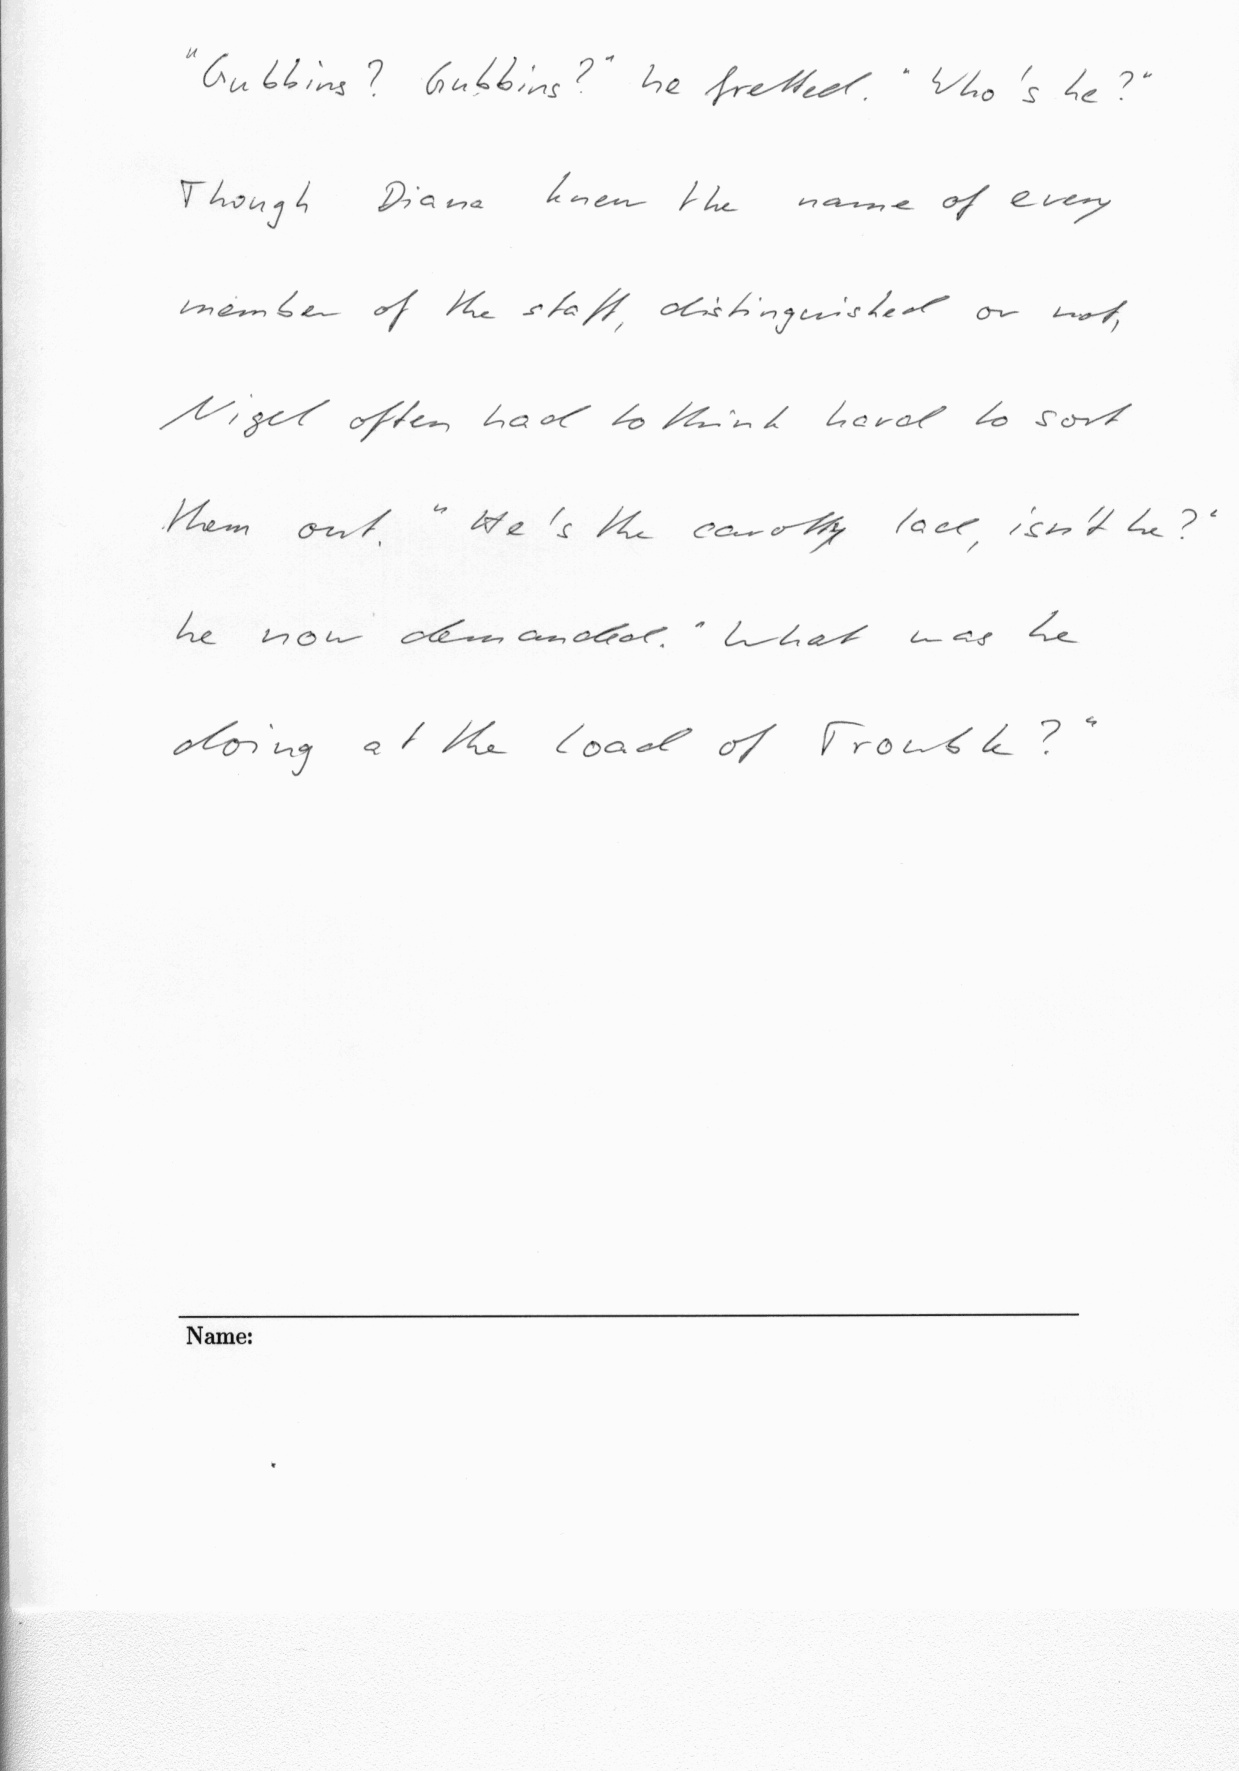 "Gubbins? Gubbins?" he fretted. "Who's he?"
Though Diana knew the name of every
member of the staff, distinguished or not,
Nigel often had to think hard to sort
them out. "He's the carotty lad, isn't he?"
he now demanded. "What was he
doing at the Load of Trouble?"
Name: